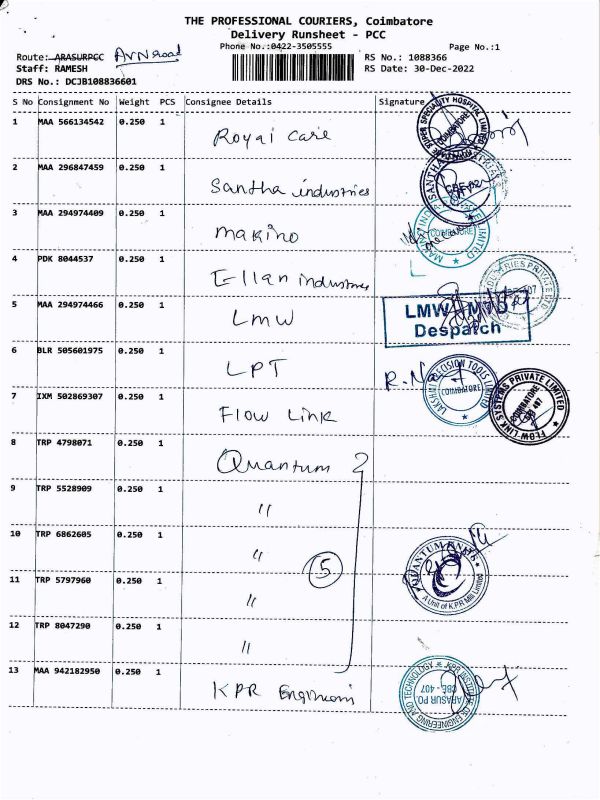 THE PROFESSIONAL COURIERS, Coimbatore
Delivery Runsheet - PCC
Phone No.:0422-3505555 Page No.:1
Route: ARASURPCC
Staff: RAMESH
DRS No.: DCJB108836601
RS No.: 1088366
RS Date: 30-Dec-2022
S No Consignment No Weight PCS Consignee Details Signature
1 MAA 566134542 0.250 1 Royal Care
2 MAA 296847459 0.250 1 Santha industries
3 MAA 294974409 0.250 1 Makino
4 PDK 8044537 0.250 1 Ellan industries
5 MAA 294974466 0.250 1 LMW
LMW
Despatch
6 BLR 505601975 0.250 1 LPT
LAKSHMI PRECISION TOOLS LIMITED
COIMBATORE
7 IXM 502869307 0.250 1 Flow Link
FLOW LINK SYSTEMS PRIVATE LIMITED
8 TRP 4798071 0.250 1 Quantum
9 TRP 5528909 0.250 1 "
10 TRP 6862605 0.250 1 "
5
QUANTUM KNITS
A Unit of K.P.R Mill Limited
11 TRP 5797960 0.250 1 "
12 TRP 8047290 0.250 1 "
13 MAA 942182950 0.250 1 KPR
KPR INSTITUTE OF ENGINEERING AND TECHNOLOGY
ARASUR PO.
CBE - 407